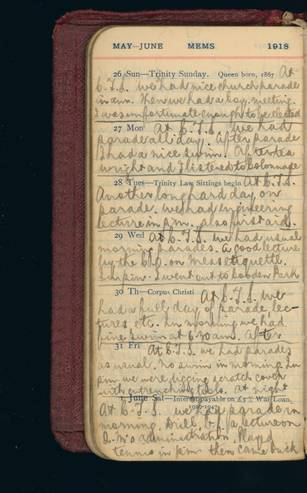 MAY—JUNE MEMS 1918
26 Sun—Trinity Sunday. Queen born, 1867 At
C.T.S. we had nice church parade
in a.m. Then we had a boy meeting.
I was unfortunate enough to be elected
27 Mon At C.T.S. We had
parade all day. After parade
I had a nice swim. After tea
Wright and I listened to
28 Tues—Trinity Law Sittings begin At C.T.S.
Another long hard day on
parade. We had engineering
lecture in p.m. also first aid.
29 Wed At C.T.S. we had usual
morning parades. A good lecture
by the C.O. on mess etiquette.
In p.m. I went out to Park
30 Th—Corpus Christi At C.T.S. We
had a full day of parade, lec-
tures etc. In morning we had
fine swim at 6.30 a.m. After
31 Fri At C.T.S. we had parades
as usual, no swim in morning. In
p.m. we were digging scratch cover
with entrenching tools. At night
1 June Sat—Interest payable on £5% War Loan,
At C.T.S. we had parade in
morning. Drill, a lecture on
administration. Played
tennis in p.m. then came back